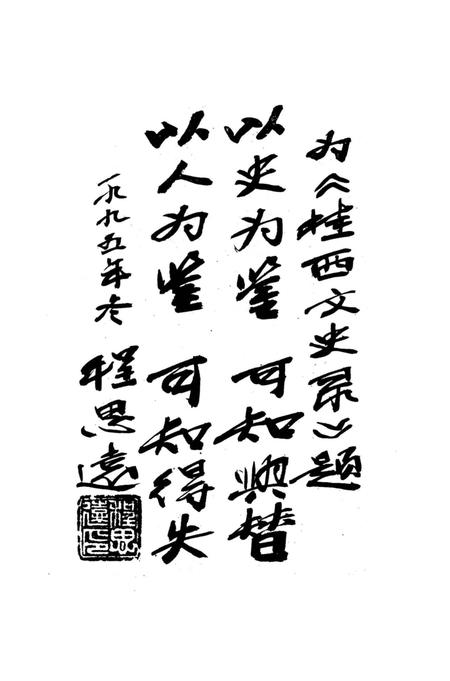 为《桂西文史录》题
以史为鉴 可知兴替
以人为鉴 可知得失
一九九五年冬
程思远
程思远印